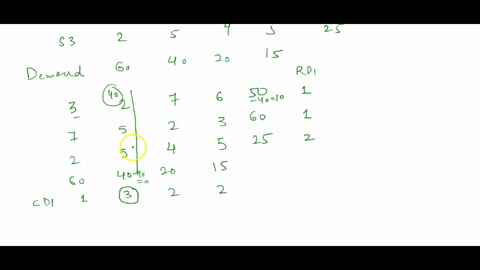 S3 2 5 4 3 25
Demand 60 40 20 15
RDI
40
3 2 7 6 50-40=10 1
7 5 2 3 60 1
2 5 4 5 25 2
60 40-40=0 20 15
CDI 1 3 2 2